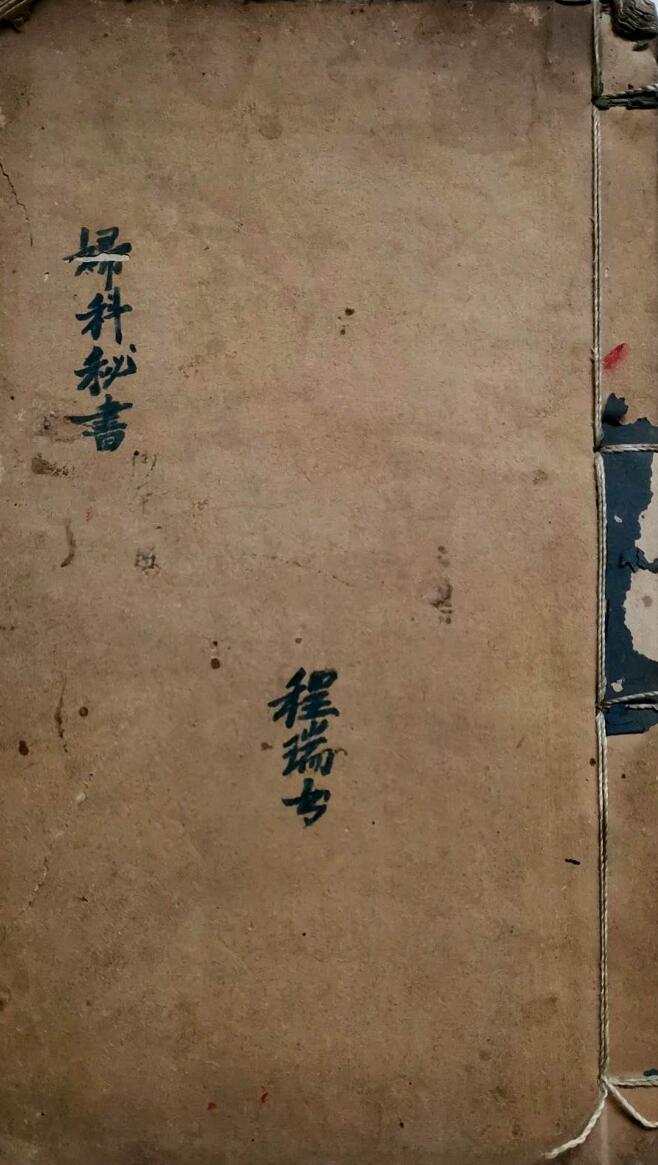 婦科秘書
程瑞